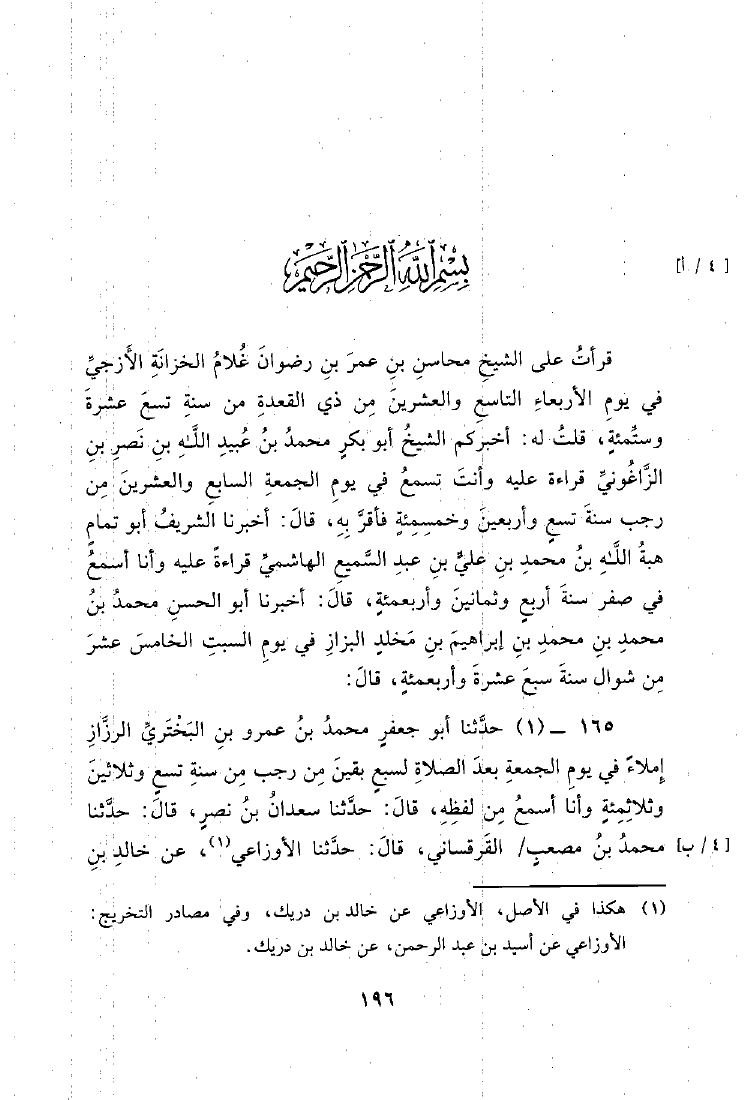 بِسْمِ اللَّهِ الرَّحْمَنِ الرَّحِيمِ
[٤ / أ]
قرأتُ على الشيخِ محاسنِ بنِ عمرَ بنِ رضوانَ غُلامُ الخزانَةِ الأَزجيِّ
في يومِ الأربعاءِ التاسعِ والعشرينَ مِن ذي القعدةِ من سنةِ تسعَ عشرةَ
وستِّمئةٍ، قلتُ له: أخبركم الشيخُ أبو بكرٍ محمدُ بنُ عُبيدِ اللَّهِ بنِ نَصرِ بنِ
الزَّاغُونيِّ قراءة عليه وأنتَ تسمعُ في يومِ الجمعةِ السابعِ والعشرينَ مِن
رجب سنةَ تسعٍ وأربعينَ وخمسِمئةٍ فأقرَّ بِهِ، قالَ: أخبرنا الشريفُ أبو تمامٍ
هبةُ اللَّهِ بنُ محمدِ بنِ عليِّ بنِ عبدِ السَّميعِ الهاشميِّ قراءةً عليه وأنا أسمعُ
في صفر سنةَ أربعٍ وثمانينَ وأربعمئةٍ، قالَ: أخبرنا أبو الحسنِ محمدُ بنُ
محمدِ بنِ محمدِ بنِ إبراهيمَ بنِ مَخلدٍ البزازِ في يومِ السبتِ الخامسَ عشرَ
مِن شوال سنةَ سبعَ عشرةَ وأربعمئةٍ، قالَ:
١٦٥ ــ (١) حدَّثنا أبو جعفرٍ محمدُ بنُ عمرو بنِ البَخْتَريِّ الرزَّازِ
إملاءً في يومِ الجمعةِ بعدَ الصلاةِ لسبعٍ بقينَ مِن رجب مِن سنةِ تسعٍ وثلاثينَ
وثلاثِمِئةٍ وأنا أسمعُ مِن لفظِهِ، قالَ: حدَّثنا سعدانُ بنُ نصرٍ، قالَ: حدَّثنا
[٤/ ب] محمدُ بنُ مصعبٍ/ القَرقساني، قالَ: حدَّثنا الأوزاعي(١)، عن خالدِ بنِ
(١) هكذا في الأصل، الأوزاعي عن خالد بن دريك، وفي مصادر التخريج:
الأوزاعي عن أسيد بن عبد الرحمن، عن خالد بن دريك.
١٩٦